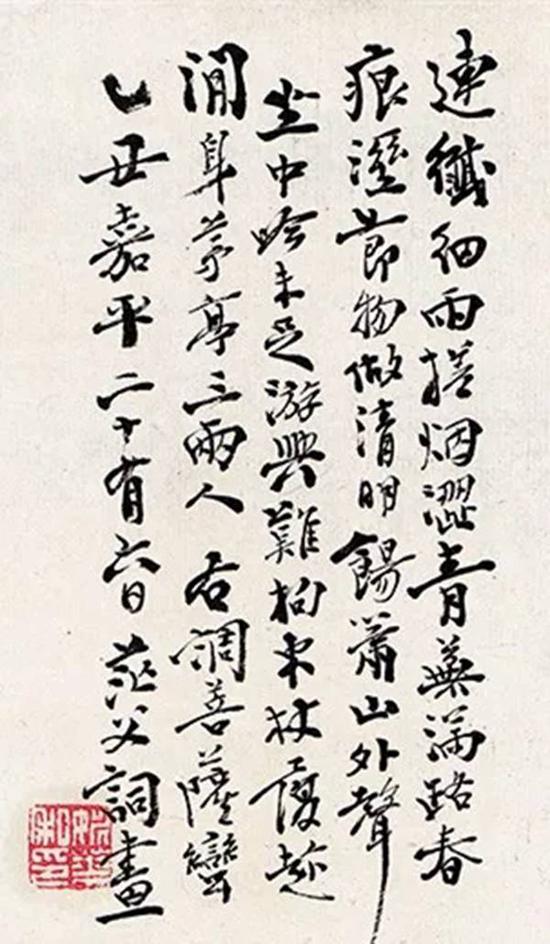 連纖細雨搓烟澀青蕪滿路春
痕溼節物做清明餳蕭山外聲
坐中吟未足游興難拘束杖履趁
閒身茅亭三兩人 右調菩薩蠻
乙丑嘉平二十有六日茫父詞畫